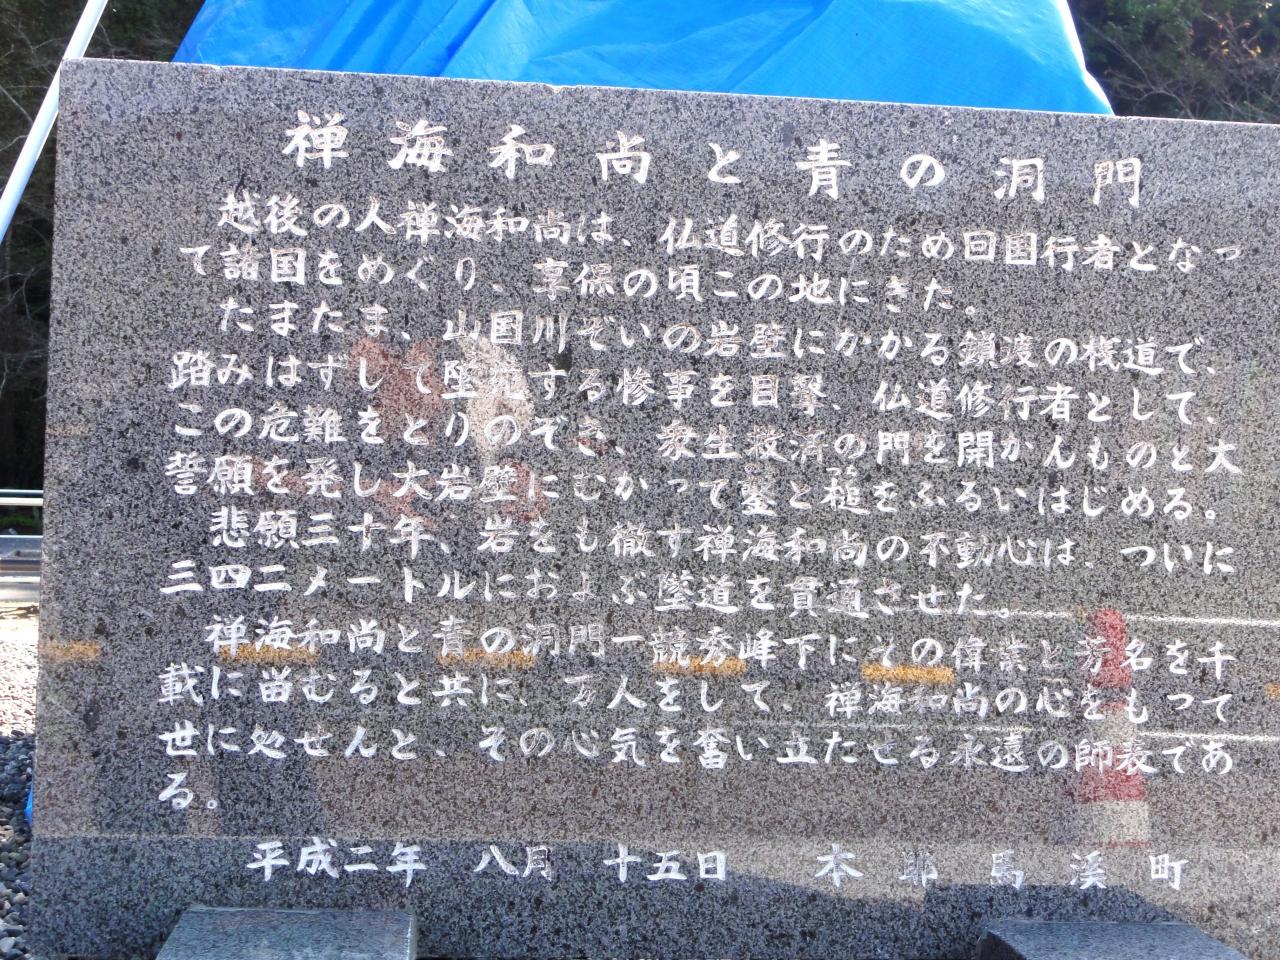 禅海和尚と青の洞門
越後の人禅海和尚は、仏道修行のため回国行者となっ
て諸国をめぐり、享保の頃この地にきた。
たまたま、山国川ぞいの岩壁にかかる鎖渡の桟道で、
踏みはずして墜死する惨事を目撃、仏道修行者として、
この危難をとりのぞき、衆生救済の門を開かんものと大
誓願を発し大岩壁にむかって鑿と槌をふるいはじめる。
悲願三十年、岩をも徹す禅海和尚の不動心は、ついに
三四二メートルにおよぶ墜道を貫通させた。
禅海和尚と青の洞門一競秀峰下にその偉業と芳名を千
載に留むると共に、万人をして、禅海和尚の心をもって
世に処せんと、その心気を奮い立たせる永遠の師表であ
る。
平成二年 八月 十五日 本耶馬溪町